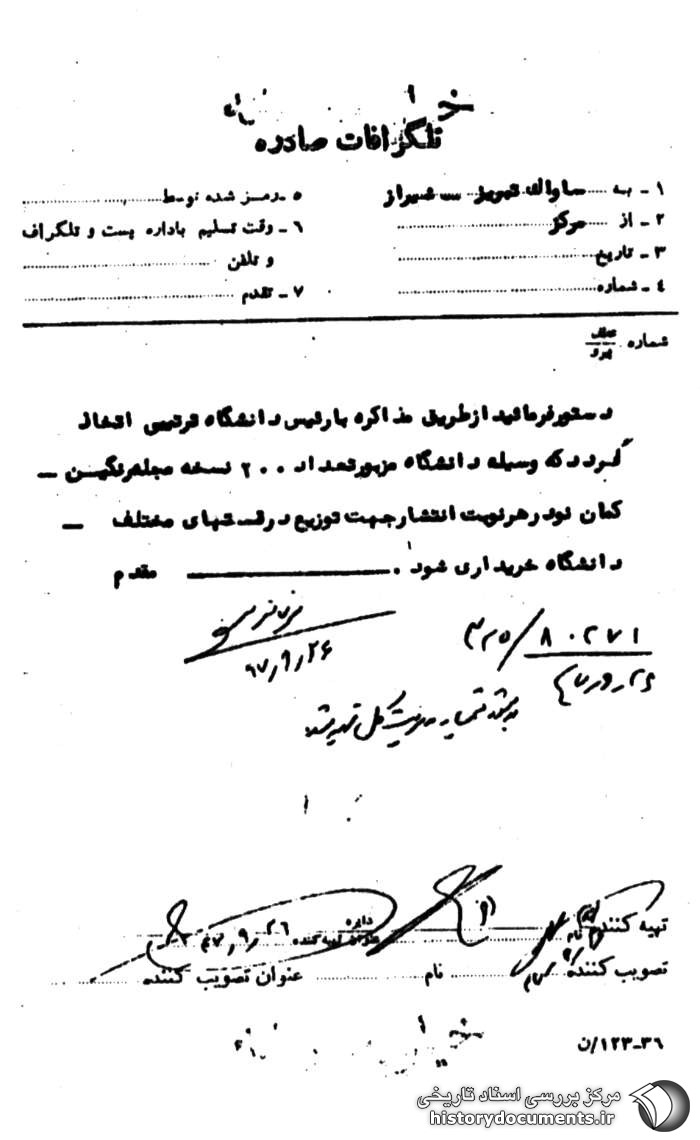 تلگرافات صادره
۱ - به ساواك تبریز — شیراز
۲ - از مرکز
۳ - تاریخ
۴ - شماره
۵ - رمز شده توسط
۶ - وقت تسلیم باداره پست و تلگراف
و تلفن
۷ - تقدم
شماره
دستور فرمائید از طریق مذاکره با رئیس دانشگاه ترتیبی اتخاذ
گردد که وسیله دانشگاه مزبور تعداد ۲۰۰ نسخه مجله رنگین —
کمان نو در هر نوبت انتشار جهت توزیع در قسمتهای مختلف —
دانشگاه خریداری شود . مقدم
۳۲۵/۸۰۲۷۱
۲۶ر۹ر۴۷
۴۷٫۹٫۲۶
تهیه کننده نام
دایره
عنوان تهیه کننده ۴۷٫۹٫۲۶
تصویب کننده نام عنوان تصویب کننده
۳۶-۱۲۳/ن
مرکز بررسی اسناد تاریخی
historydocuments.ir